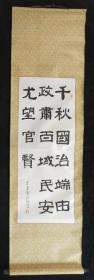 千秋國治端由
政肅百域民安
尤望官賢